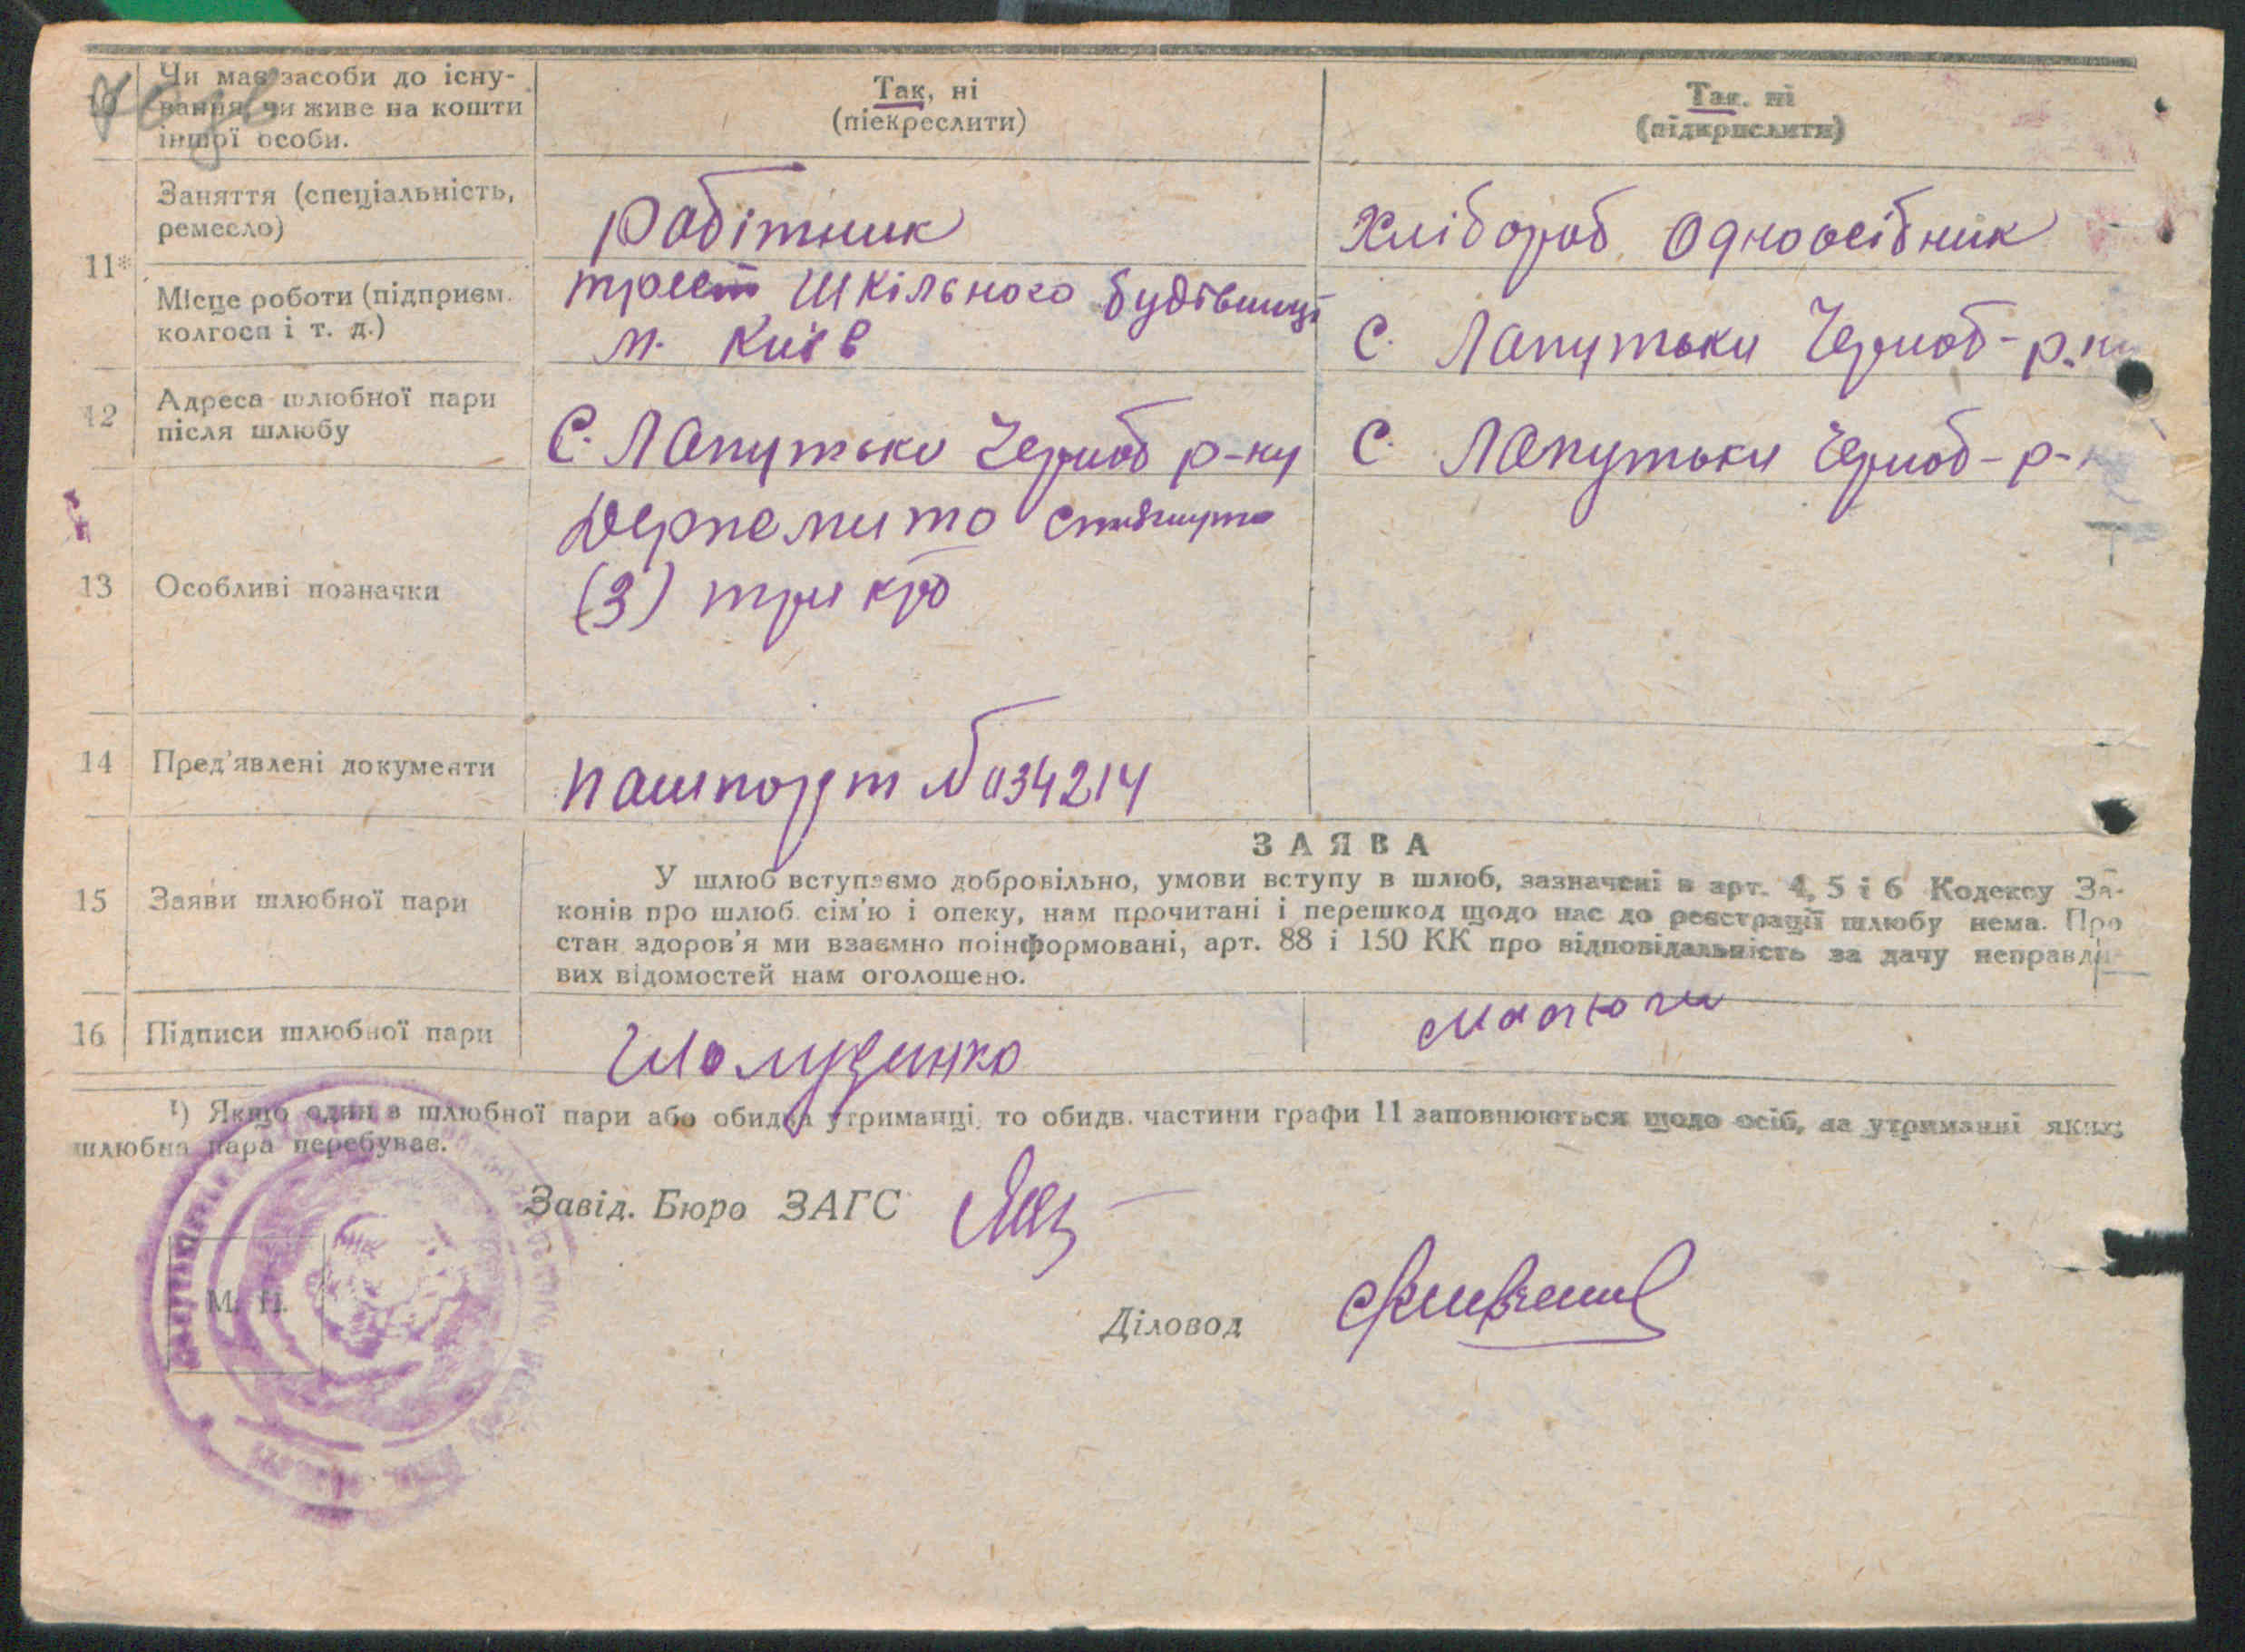 Чи має засоби до існу-
вання, чи живе на кошти
іншої особи.
Так, ні
(піекреслити)
Так. ні
(підкрислити)
11*
Заняття (спеціальність,
ремесло)
Робітник
Хлібороб Одноосібник
Місце роботи (підприєм.
колгосп і т. д.)
трест Шкільного будівництв
м. Київ
С. Лапутьки Чорноб-р-ну
12
Адреса шлюбної пари
після шлюбу
С. Лапутьки Чорноб р-ну
С. Лапутьки Чорноб-р-
13
Особливі позначки
Держмито стягнуто
(3) три крб
14
Пред'явлені документи
пашпорт № 034214
ЗАЯВА
15
Заяви шлюбної пари
У шлюб вступаємо добровільно, умови вступу в шлюб, зазначені в арт. 4, 5 і 6 Кодексу За-
конів про шлюб сім'ю і опеку, нам прочитані і перешкод щодо нас до реєстрації шлюбу нема. Про
стан здоров'я ми взаємно поінформовані, арт. 88 і 150 КК про відповідальність за дачу неправди-
вих відомостей нам оголошено.
16
Підписи шлюбної пари
Шолуденко
1) Якщо один з шлюбної пари або обидва утриманці, то обидв. частини графи 11 заповнюються щодо осіб, на утриманні яких
шлюбна пара перебуває.
Завід. Бюро ЗАГС
М. П.
Діловод